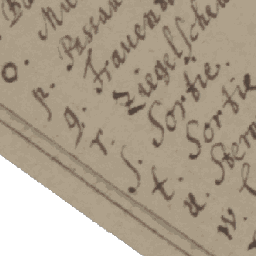 o. Mu
p. Passau
q. Frauen
r. Ziegelscheu
s. Sortie.
t. Sortie
u. Stern
w.